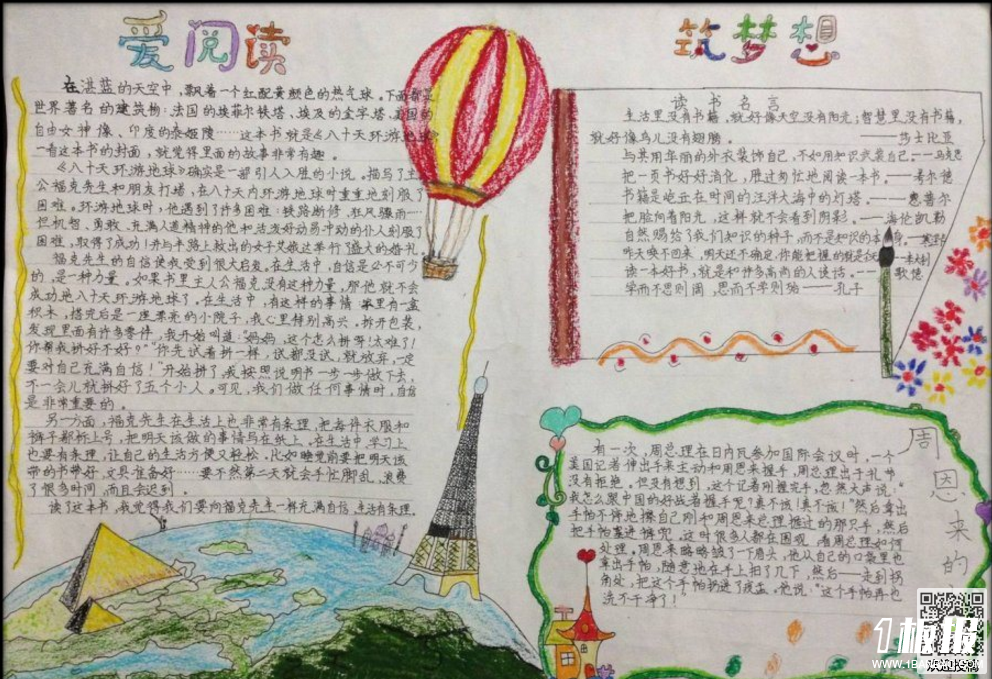 爱阅读
筑梦想
在湛蓝的天空中，飘着一个红配黄颜色的热气球。下面
世界著名的建筑物：法国的埃菲尔铁塔、埃及的金字塔、国的
自由女神像、印度的泰姬陵……这本书就是《八十天环游地球》
一看这本书的封面，就觉得里面的故事非常有趣。
《八十天环游地球》确实是一部引人入胜的小说。描写了主
公福克先生和朋友打堵，在八十天内环游地球时重重地刻服了
困难。环游地球时，他遇到了许多困难：铁路断修，狂风骤雨……
但机智、勇敢、充满人道精神的他和活泼好动易冲动的仆人刻服了
困难，取得了成功！并与半路上救出的女子艾娥达举行了盛大的婚礼。
福克先生的自信使我受到很大启发。在生活中，自信是必不可少
的，是一种力量。如果书里主人公福克没有这种力量，那他就不会
成功地八十天环游地球了。在生活中，有这样的事情：里有一盒
积木，搭完后是一座漂亮的小院子，我心里特别高兴。拆开包装，
发现里面有许多零件，我开始叫道：“妈妈，这个怎么拼呀！太难了！
你帮我拼好不好？”“你先试着拼一样，试都没试，就放弃，一定
要对自己充满自信！”开始拼了，我按照说明书一步一步做下去，
不一会儿就拼好了五个小人。可见，我们做任何事情时，自信
是非常重要的。
另一方面，福克先生在生活上也非常有条理，把每件衣服和
裤子都标上号，把明天该做的事情写在纸上。在生活中，学习上
也要有条理，让自己的生活方便又轻松。比如睡觉前要把明天该
带的书带好，文具准备好……要不然第二天就会手忙脚乱，浪费
了很多时间，而且会迟到。
读了这本书，我觉得我们要向福克先生一样充满自信，生活有条理。
读书名言
生活里没有书籍，就好像天空没有阳光；智慧里没有书籍，
就好像鸟儿没有翅膀。——莎士比亚
与其用华丽的外衣装饰自己，不如用知识武装自己——马克思
把一页书好好消化，胜过匆忙地阅读一本书。——考尔德
书籍是屹立在时间的汪洋大海中的灯塔。——惠普尔
把脸向着阳光，这样就不会看到阴影。——海伦凯勒
自然赐给了我们知识的种子，而不是知识的本身。——
昨天唤不回来，明天还不确定，你能把握的就是今天
读一本好书，就是和许多高尚的人谈话。——歌德
学而不思则罔，思而不学则殆——孔子
周恩来的
有一次，周总理在日内瓦参加国际会议时，一个
美国记者伸出手来主动和周恩来握手，周总理出于礼节
没有拒绝。但没有想到，这个记者刚握完手，忽然大声说：
“我怎么跟中国的好战者握手呢？真不该！真不该！”然后拿出
手帕不停地擦自己刚和周恩来总理握过的那只手，然后
把手帕塞进裤兜。这时很多人都在围观，看周总理如何
处理。周恩来略略皱了一下眉头，他从自己的口袋里也
拿出手帕，随意地在手上扫了几下，然后——走到拐
角处，把这个手帕扔进了痰盂。他说：“这个手帕再也
洗不干净了！”
1板报
WWW.1BANBAO.COM